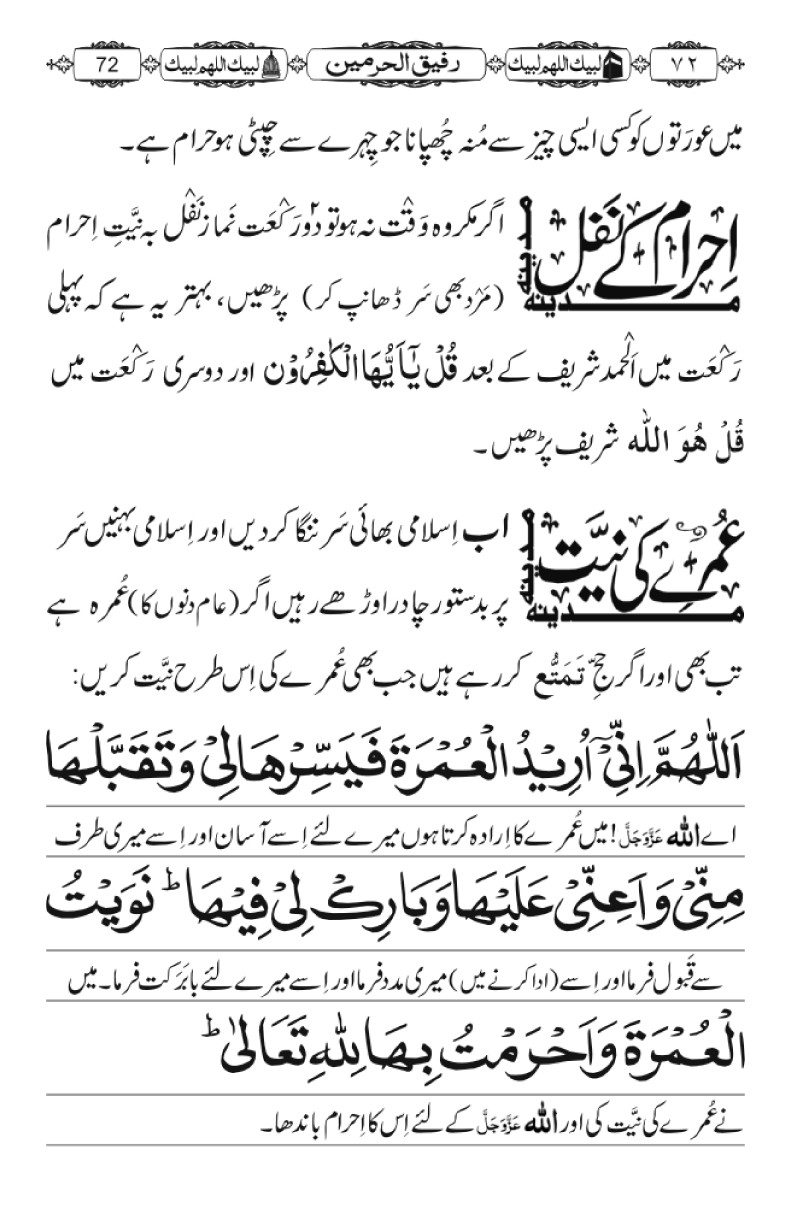 ۷۲ لبیك اللھم لبیك رفیق الحرمین لبیك اللھم لبیك 72
میں عورَتوں کو کسی ایسی چیز سے مُنہ چُھپانا جو چِہرے سے چِپٹی ہو حرام ہے۔
اِحرام کے نَفْل
مدینہ
مدینہ
اگر مکروہ وَقْت نہ ہو تو دو٢ رَکْعَت نَماز نَفْل بہ نیَّتِ اِحرام
(مَرْد بھی سَر ڈھانپ کر) پڑھیں، بہتر یہ ہے کہ پہلی
رَکْعَت میں اَلْحمد شریف کے بعد قُلْ یٰۤاَیُّهَا الْکٰفِرُوْن اور دوسری رَکْعَت میں
قُلْ هُوَ الله شریف پڑھیں۔
عُمرے کی نیَّت
مدینہ
مدینہ
اب اِسلامی بھائی سَر ننگا کر دیں اور اِسلامی بہنیں سَر
پر بدستور چادر اوڑھے رہیں اگر (عام دنوں کا) عُمرہ ہے
تب بھی اور اگر حجِّ تَمَتُّع کر رہے ہیں جب بھی عُمرے کی اِس طرح نیَّت کریں:
اَللّٰهُمَّ اِنِّیْۤ اُرِیْدُ الْعُمْرَةَ فَیَسِّرْهَا لِیْ وَتَقَبَّلْهَا
اے الله عَزَّوَجَلَّ! میں عُمرے کا اِرادہ کرتا ہوں میرے لئے اِسے آسان اور اِسے میری طرف
مِنِّیْ وَاَعِنِّیْ عَلَیْهَا وَبَارِكْ لِیْ فِیْهَا ؕ نَوَیْتُ
سے قَبول فرما اور اِسے (ادا کرنے میں) میری مدد فرما اور اِسے میرے لئے بابَرَکت فرما۔ میں
الْعُمْرَةَ وَاَحْرَمْتُ بِهَا لِلّٰهِ تَعَالٰی ؕ
نے عُمرے کی نیَّت کی اور الله عَزَّوَجَلَّ کے لئے اِس کا اِحرام باندھا۔